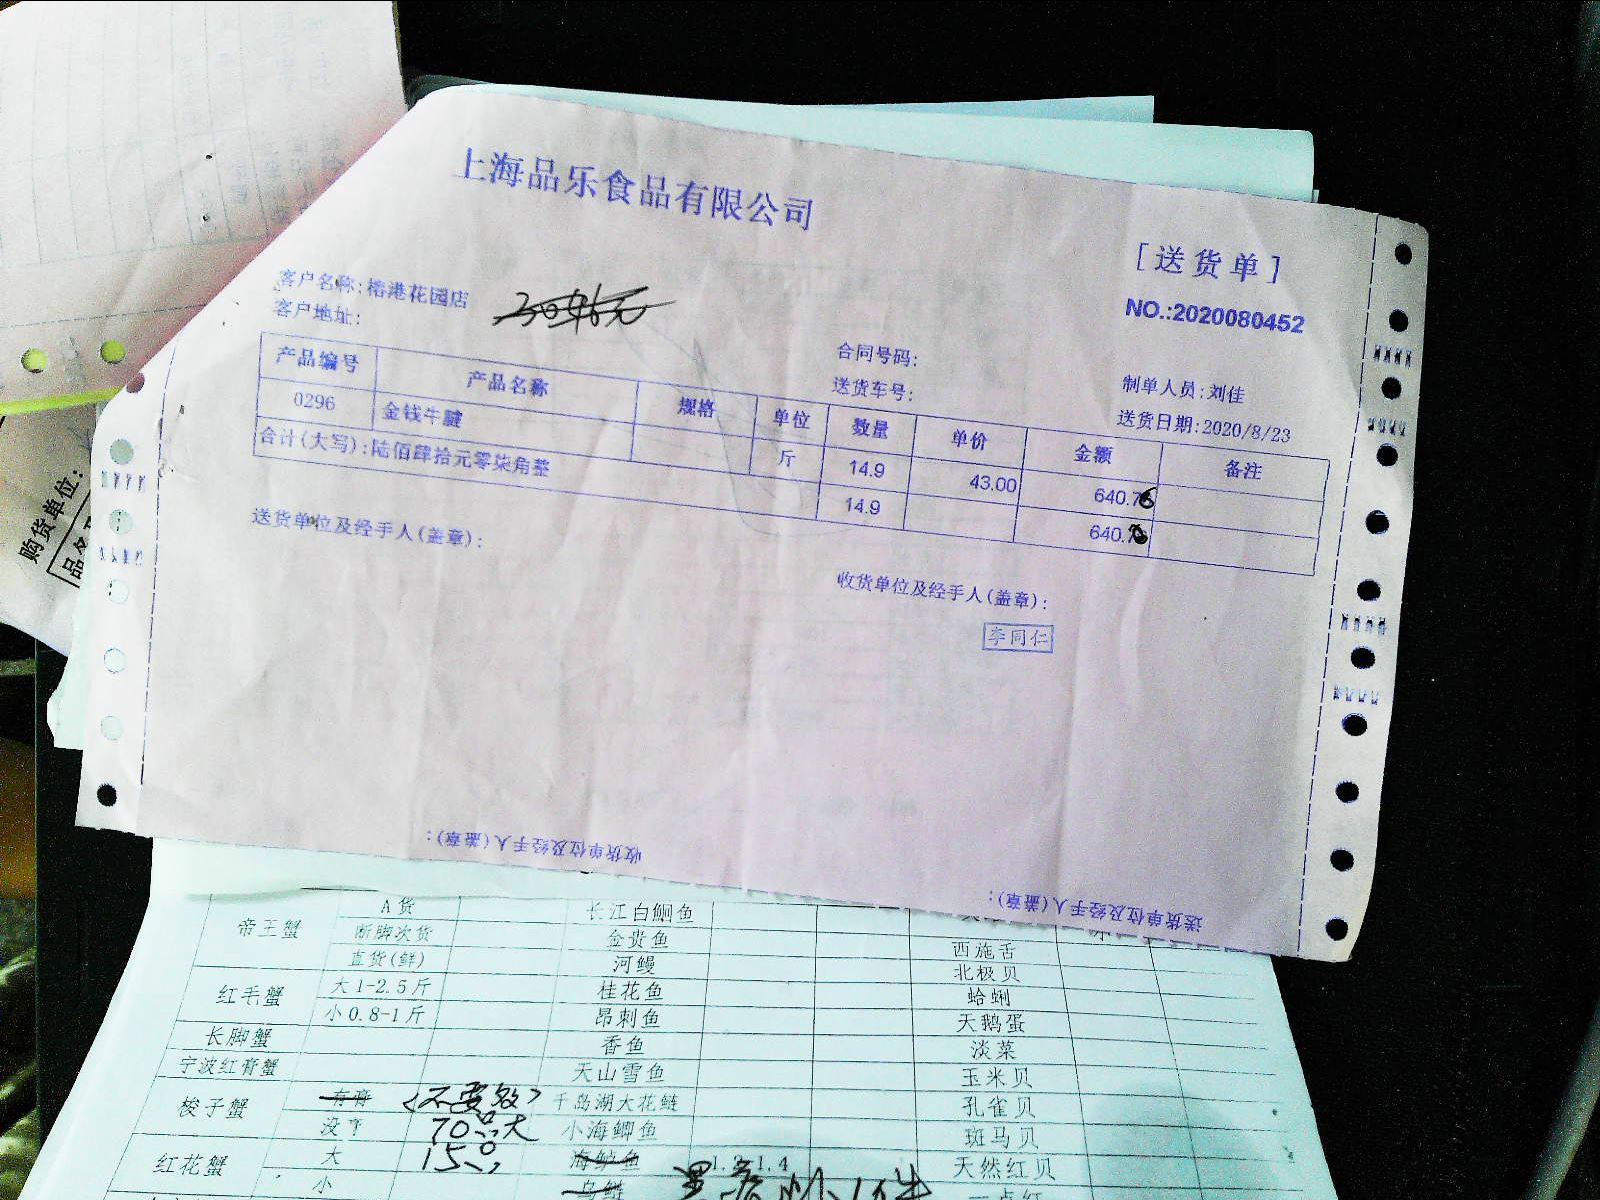 上海品乐食品有限公司
[送货单]
NO.:2020080452
客户名称:榕港花园店
客户地址:
合同号码:
送货车号:
制单人员:刘佳
送货日期:2020/8/23
产品编号 产品名称 规格 单位 数量 单价 金额 备注
0296 金钱牛腱 斤 14.9 43.00 640.7
合计(大写):陆佰肆拾元零柒角整 14.9 640.7
送货单位及经手人(盖章):
收货单位及经手人(盖章):
李同仁
收货单位及经手人(盖章):
送货单位及经手人(盖章):
购货单位:
品名
帝王蟹 A货 长江白鮰鱼
断脚次货 金贵鱼 西施舌
直货(鲜) 河鳗 北极贝
红毛蟹 大1-2.5斤 桂花鱼 蛤蜊
小0.8-1斤 昂刺鱼 天鹅蛋
长脚蟹 香鱼 淡菜
宁波红膏蟹 天山雪鱼 玉米贝
梭子蟹 有膏 千岛湖大花鲢 孔雀贝
70 大 小海鲫鱼 斑马贝
红花蟹 大 15 海鲈鱼 1.2-1.4 天然红贝
小 乌鲢